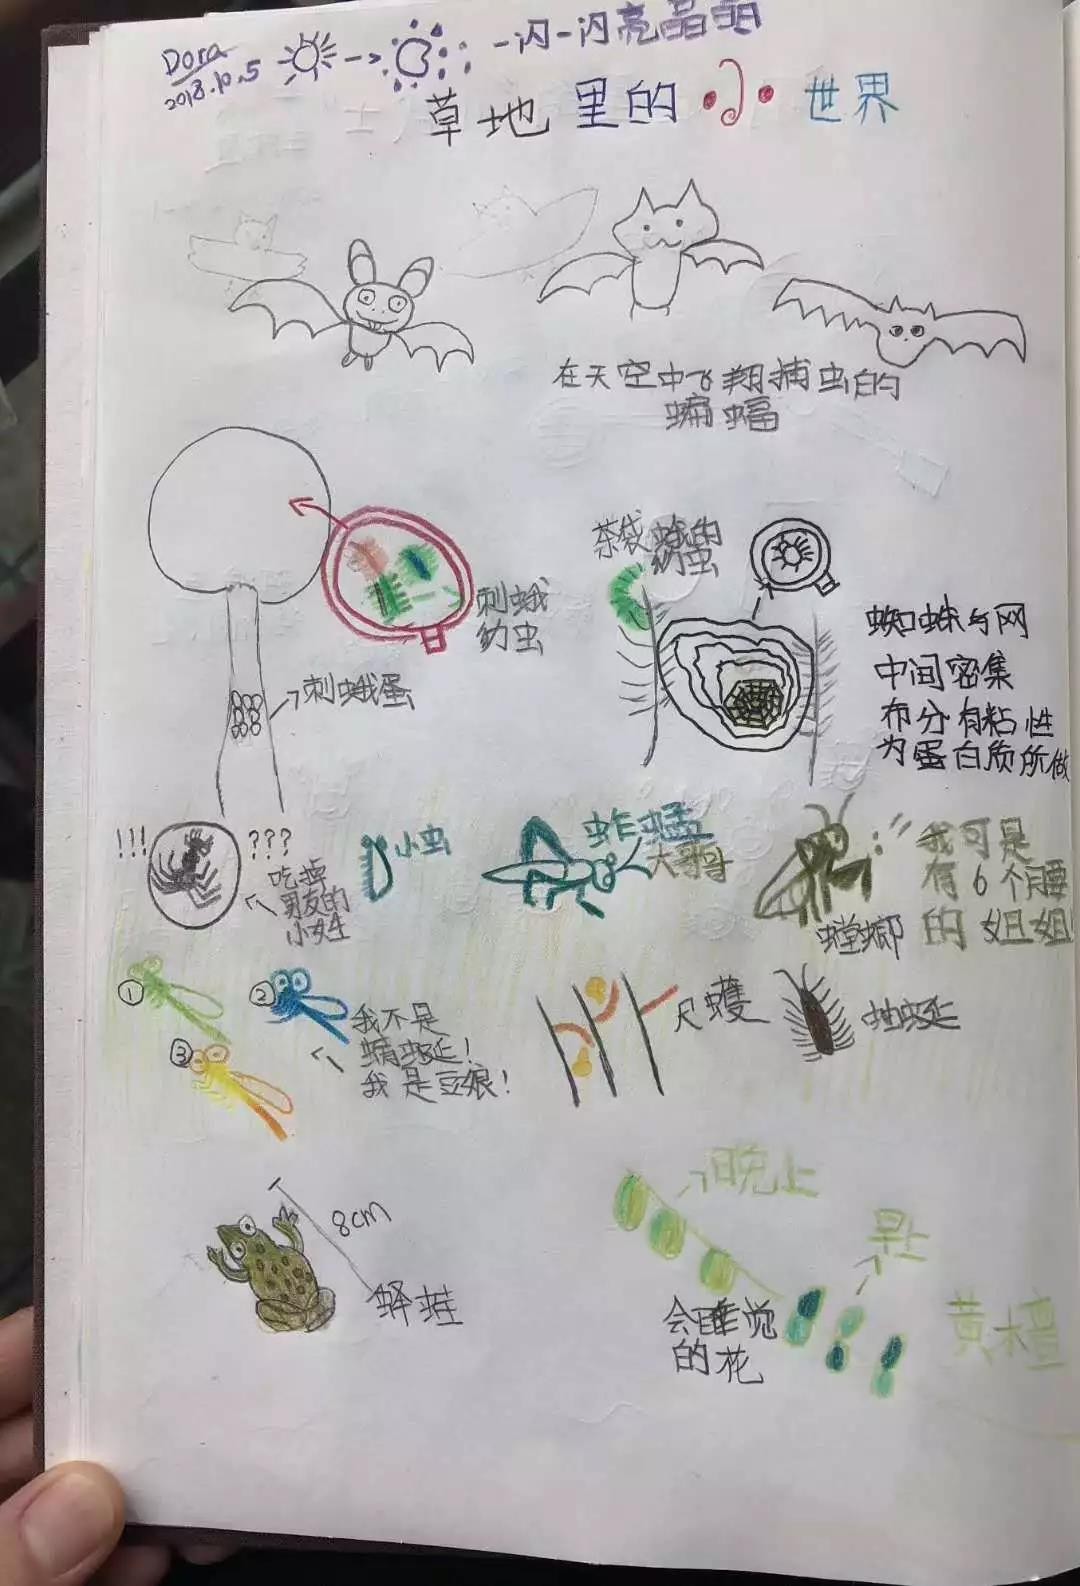 Dora
2018.10.5
一闪一闪亮晶晶
草地里的小世界
在天空中飞翔捕虫的
蝙蝠
刺蛾
幼虫
刺蛾蛋
茶袋蛾的
幼虫
蜘蛛与网
中间密集
布分有粘性
为蛋白质所做
!!!
???
吃掉
男友的
小姓
小虫
蚱蜢
大哥哥
我可是
有6个腰
的姐姐
螳螂
①
②
③
我不是
蝙蜒!
我是豆娘!
尺蠖
蚰蜒
8cm
蛙
晚上
早上
会睡觉
的花
黄檀